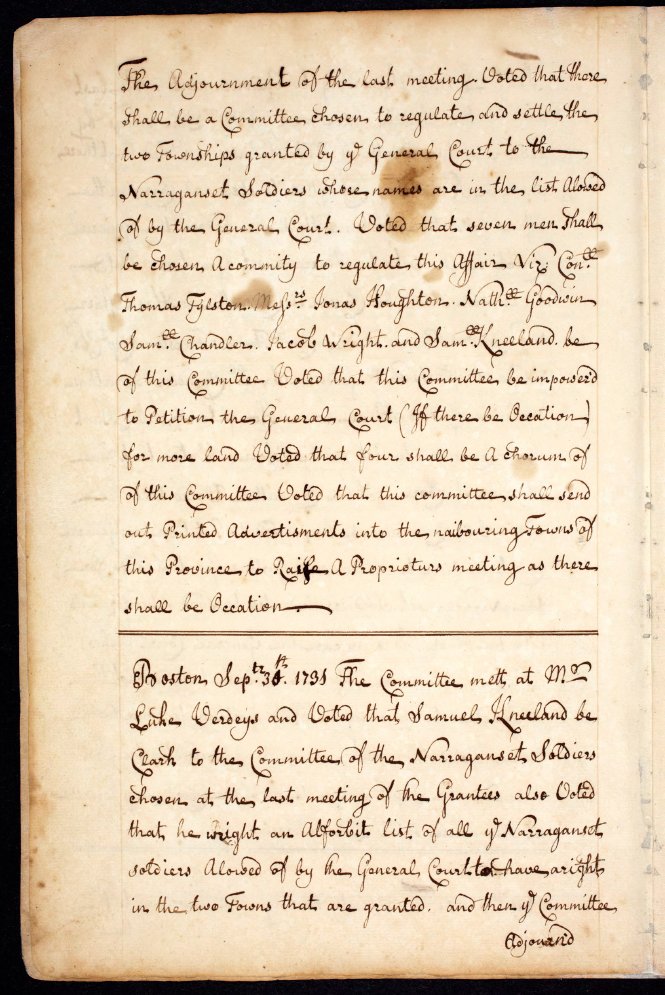 The Adjournment of the last meeting. Voted that there
shall be a Committee chosen to regulate and settle the
two Townships granted by yᵉ General Court to the
Narraganset Soldiers whose names are in the list Alowed
of by the General Court. Voted that seven men shall
be chosen A commity to regulate this Affair Viz. Conˡˡ
Thomas Fylston. Messʳˢ Jonas Houghton. Nathˡˡ Goodwin
Samˡˡ Chandler. Jacob Wright. and Samˡˡ Kneeland. be
of this Committee Voted that this Committee be impower'd
to Petition the General Court (If there be Occation)
for more land Voted that four shall be A chorum of
of this Committee Voted that this committee shall send
out Printed Advertisments into the naibouring Towns of
this Province to Raise A Proprioturs meeting as there
shall be Occation
Boston Sepᵗʳ 1731 The Committee mett at Mʳ
Luke Verdeys and Voted that Samuel Kneeland be
Clark to the Committee of the Narraganset Soldiers
chosen at the last meeting of the Grantees also Voted
that he wright an Alforbit list of all yᵉ Narraganset
soldiers Alowed of by the General Court to have a right
in the two Towns that are granted. and then yᵉ Committee
Adjournd